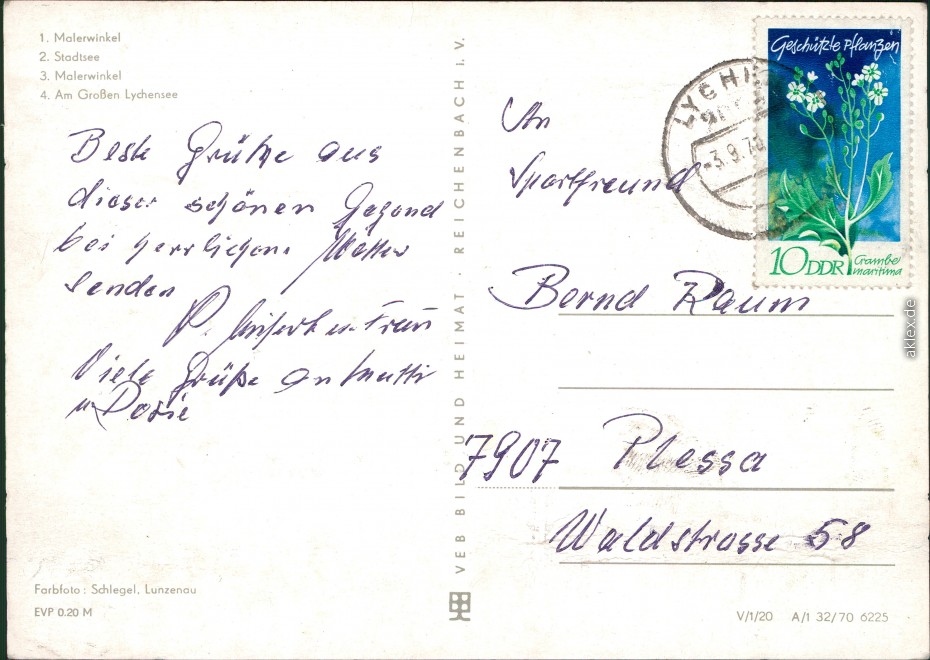 1. Malerwinkel
2. Stadtsee
3. Malerwinkel
4. Am Großen Lychensee
Beste Grüße aus
dieser schönen Gegend
bei herrlichem Wetter
senden
P. u. Frau
Viele Grüße an Mutti
u. Dosie
Farbfoto: Schlegel, Lunzenau
EVP 0.20 M
VEB BILD UND HEIMAT · REICHENBACH I. V.
Geschützte Pflanzen
10 DDR
Crambe
maritima
LYCHE
-3.9.70
An
Sportfreund
Bernd Raum
7907 Plessa
Waldstrasse 58
V/1/20 A/1 32/70 6225
aklex.de